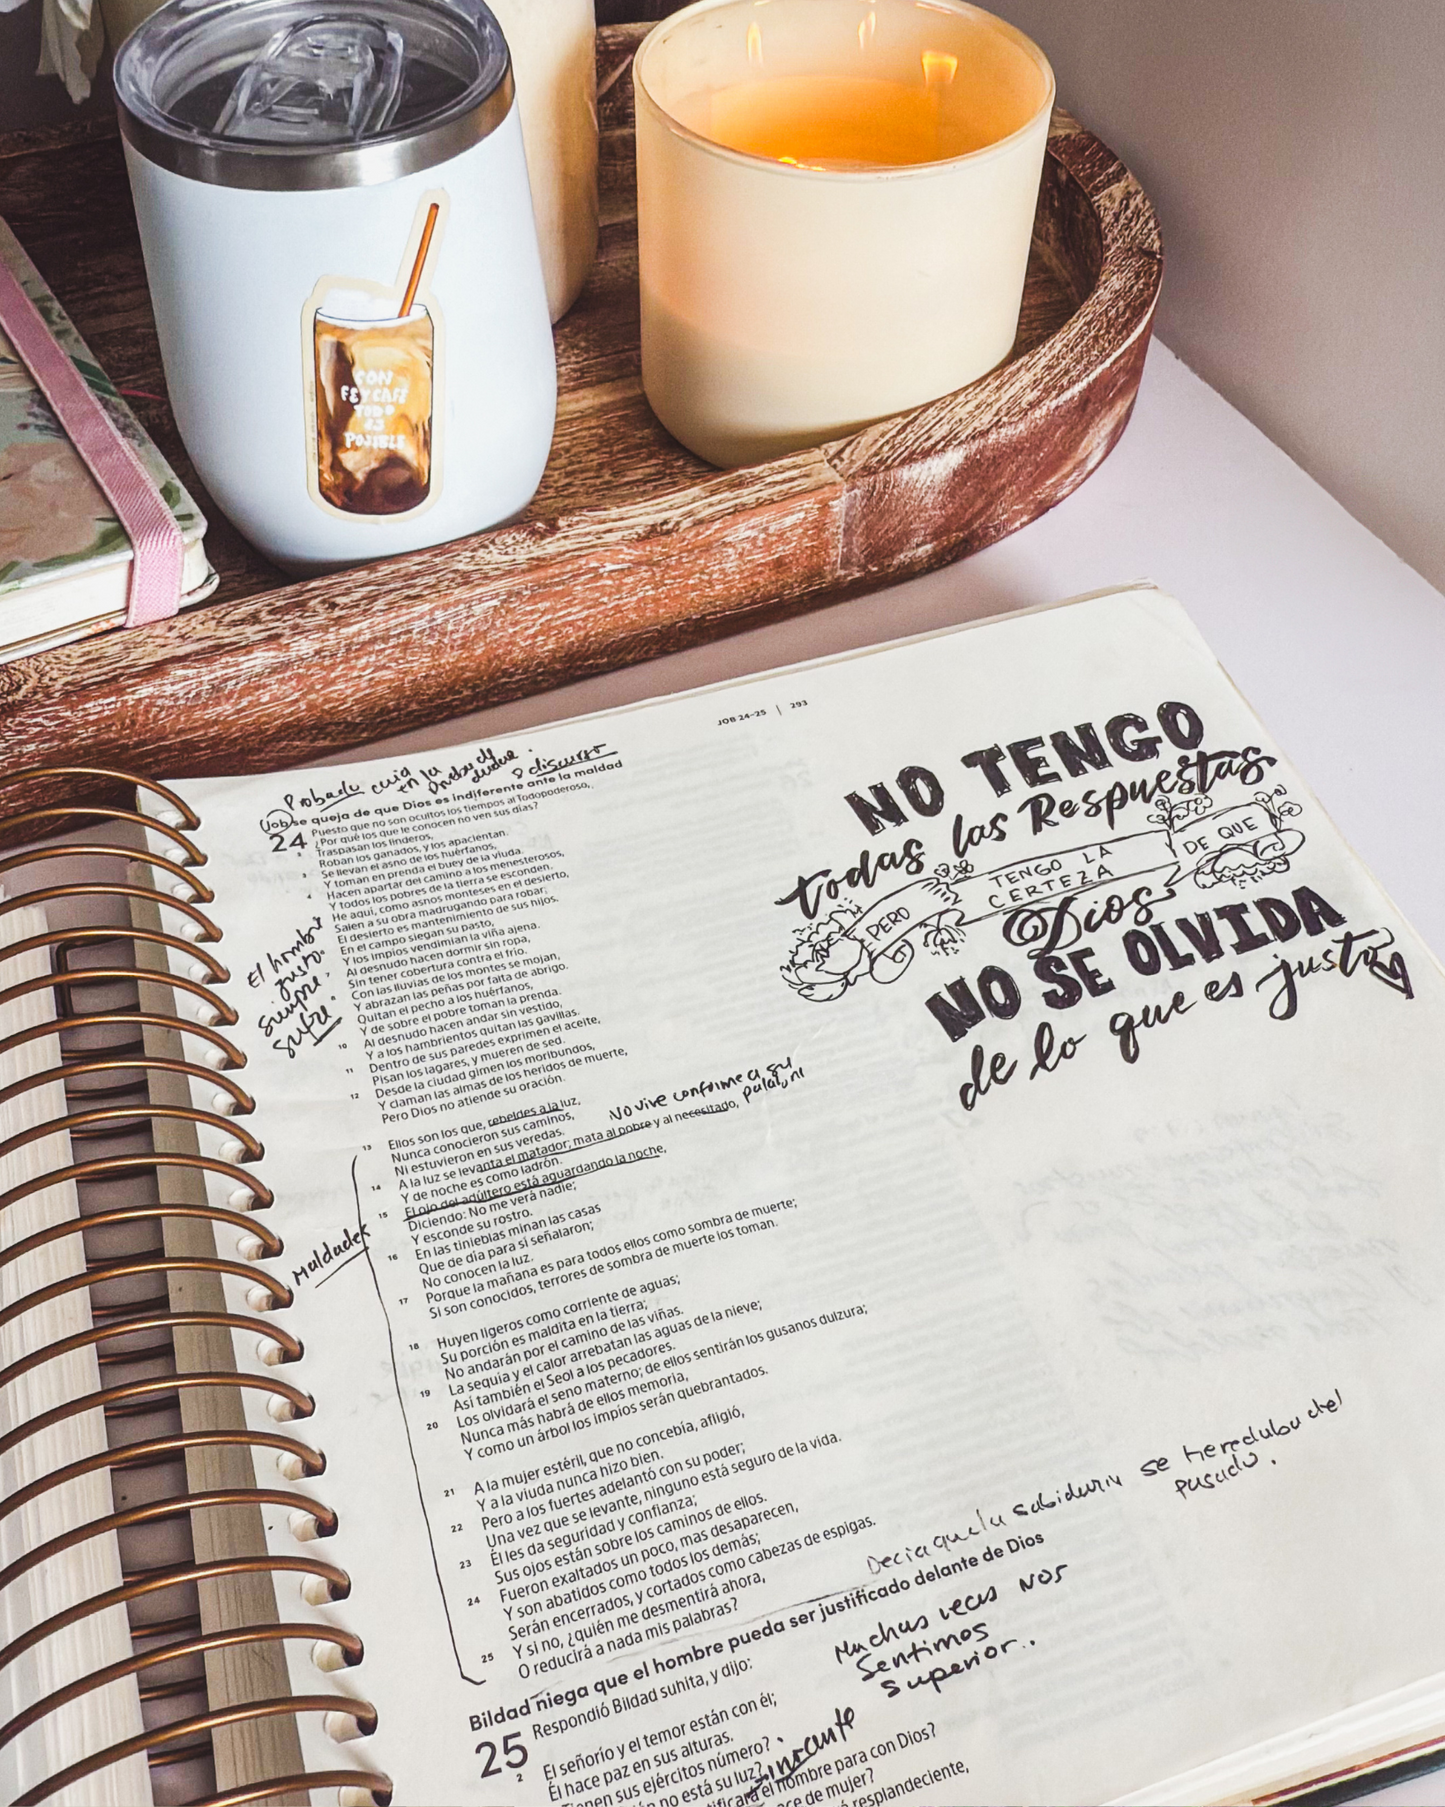 CON
FE Y CAFE
TODO
ES
POSIBLE
JOB 24–25 | 293
NO TENGO
todas las Respuestas
PERO TENGO LA CERTEZA DE QUE
Dios
NO SE OLVIDA
de lo que es justo
Probado
en la
discurso
Job se queja de que Dios es indiferente ante la maldad
24 Puesto que no son ocultos los tiempos al Todopoderoso,
¿Por qué los que le conocen no ven sus días?
2 Traspasan los linderos,
Roban los ganados, y los apacientan.
3 Se llevan el asno de los huérfanos,
Y toman en prenda el buey de la viuda.
4 Hacen apartar del camino a los menesterosos,
Y todos los pobres de la tierra se esconden.
He aquí, como asnos monteses en el desierto,
Salen a su obra madrugando para robar;
El desierto es mantenimiento de sus hijos.
En el campo siegan su pasto,
Y los impíos vendimian la viña ajena.
Al desnudo hacen dormir sin ropa,
Sin tener cobertura contra el frío.
Con las lluvias de los montes se mojan,
Y abrazan las peñas por falta de abrigo.
Quitan el pecho a los huérfanos,
Y de sobre el pobre toman la prenda.
10 Al desnudo hacen andar sin vestido,
Y a los hambrientos quitan las gavillas.
11 Dentro de sus paredes exprimen el aceite,
Pisan los lagares, y mueren de sed.
12 Desde la ciudad gimen los moribundos,
Y claman las almas de los heridos de muerte,
Pero Dios no atiende su oración.
El hombre
justo
siempre
sufre
13 Ellos son los que, rebeldes a la luz,
Nunca conocieron sus caminos,
Ni estuvieron en sus veredas.
No vive conforme a su
14 A la luz se levanta el matador; mata al pobre y al necesitado,
Y de noche es como ladrón.
15 El ojo del adúltero está aguardando la noche,
Diciendo: No me verá nadie;
Y esconde su rostro.
16 En las tinieblas minan las casas
Que de día para sí señalaron;
No conocen la luz.
17 Porque la mañana es para todos ellos como sombra de muerte;
Si son conocidos, terrores de sombra de muerte los toman.
Maldades
18 Huyen ligeros como corriente de aguas;
Su porción es maldita en la tierra;
No andarán por el camino de las viñas.
19 La sequía y el calor arrebatan las aguas de la nieve;
Así también el Seol a los pecadores.
20 Los olvidará el seno materno; de ellos sentirán los gusanos dulzura;
Nunca más habrá de ellos memoria,
Y como un árbol los impíos serán quebrantados.
21 A la mujer estéril, que no concebía, afligió,
Y a la viuda nunca hizo bien.
22 Pero a los fuertes adelantó con su poder;
Una vez que se levante, ninguno está seguro de la vida.
23 Él les da seguridad y confianza;
Sus ojos están sobre los caminos de ellos.
24 Fueron exaltados un poco, mas desaparecen,
Y son abatidos como todos los demás;
Serán encerrados, y cortados como cabezas de espigas.
25 Y si no, ¿quién me desmentirá ahora,
O reducirá a nada mis palabras?
Decia que la sabiduria se heredaba del
pasado.
Bildad niega que el hombre pueda ser justificado delante de Dios
25 Respondió Bildad suhita, y dijo:
Muchas veces nos
sentimos
superior..
2 El señorío y el temor están con él;
Él hace paz en sus alturas.
Tienen sus ejércitos número?
no está su luz?
tificará el hombre para con Dios?
ce de mujer?
resplandeciente,